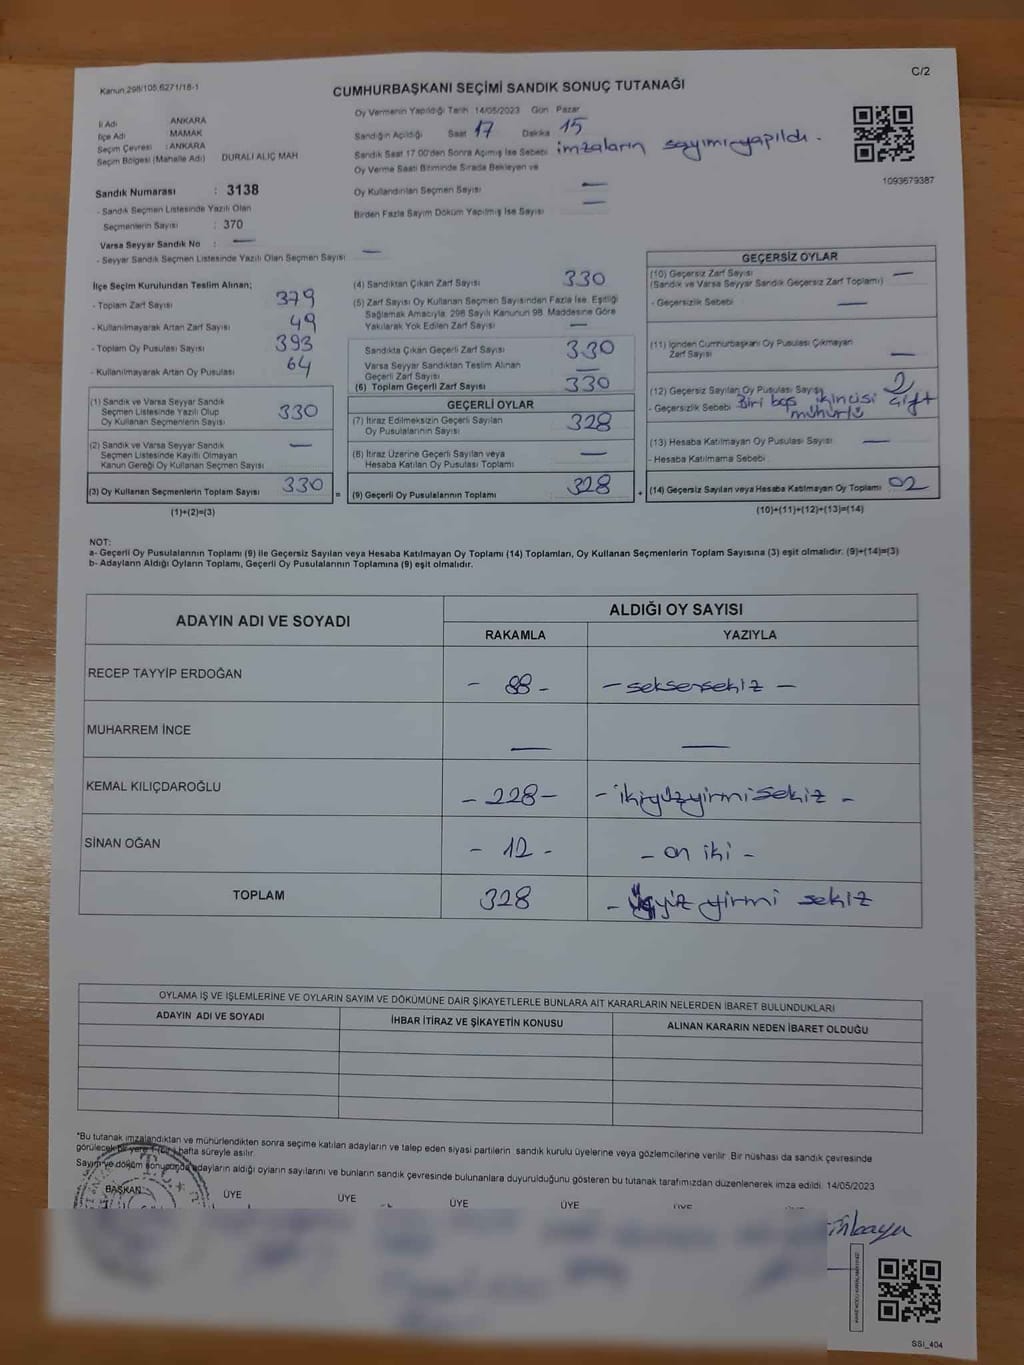 Kanun 298/105,6271/18-1
C/2
CUMHURBAŞKANI SEÇİMİ SANDIK SONUÇ TUTANAĞI
İl Adı ANKARA
İlçe Adı MAMAK
Seçim Çevresi : ANKARA
Seçim Bölgesi (Mahalle Adı) DURALİ ALIÇ MAH
Oy Vermenin Yapıldığı Tarih 14/05/2023 Gün Pazar
Sandığın Açıldığı Saat 17 Dakika 15
Sandık Saat 17.00'den Sonra Açılmış İse Sebebi imzaların sayımı yapıldı.
Oy Verme Saati Bitiminde Sırada Bekleyen ve
Oy Kullandırılan Seçmen Sayısı —
Birden Fazla Sayım Döküm Yapılmış İse Sayısı —
1093679387
Sandık Numarası : 3138
- Sandık Seçmen Listesinde Yazılı Olan
Seçmenlerin Sayısı : 370
Varsa Seyyar Sandık No : —
- Seyyar Sandık Seçmen Listesinde Yazılı Olan Seçmen Sayısı —
İlçe Seçim Kurulundan Teslim Alınan;
- Toplam Zarf Sayısı 379
- Kullanılmayarak Artan Zarf Sayısı 49
- Toplam Oy Pusulası Sayısı 393
- Kullanılmayarak Artan Oy Pusulası 64
(1) Sandık ve Varsa Seyyar Sandık
Seçmen Listesinde Yazılı Olup
Oy Kullanan Seçmenlerin Sayısı 330
(2) Sandık ve Varsa Seyyar Sandık
Seçmen Listesinde Kayıtlı Olmayan
Kanun Gereği Oy Kullanan Seçmen Sayısı —
(3) Oy Kullanan Seçmenlerin Toplam Sayısı 330
(1)+(2)=(3)
(4) Sandıktan Çıkan Zarf Sayısı 330
(5) Zarf Sayısı Oy Kullanan Seçmen Sayısından Fazla İse, Eşitliği
Sağlamak Amacıyla, 298 Sayılı Kanunun 98. Maddesine Göre
Yakılarak Yok Edilen Zarf Sayısı —
Sandıkta Çıkan Geçerli Zarf Sayısı 330
Varsa Seyyar Sandıktan Teslim Alınan
Geçerli Zarf Sayısı —
(6) Toplam Geçerli Zarf Sayısı 330
GEÇERLİ OYLAR
(7) İtiraz Edilmeksizin Geçerli Sayılan
Oy Pusulalarının Sayısı 328
(8) İtiraz Üzerine Geçerli Sayılan veya
Hesaba Katılan Oy Pusulası Toplamı —
= (9) Geçerli Oy Pusulalarının Toplamı 328
GEÇERSİZ OYLAR
(10) Geçersiz Zarf Sayısı —
(Sandık ve Varsa Seyyar Sandık Geçersiz Zarf Toplamı)
- Geçersizlik Sebebi —
(11) İçinden Cumhurbaşkanı Oy Pusulası Çıkmayan
Zarf Sayısı —
(12) Geçersiz Sayılan Oy Pusulası Sayısı 2
- Geçersizlik Sebebi Biri boş ikincisi çift
mühürlü
(13) Hesaba Katılmayan Oy Pusulası Sayısı —
- Hesaba Katılmama Sebebi
+ (14) Geçersiz Sayılan veya Hesaba Katılmayan Oy Toplamı 02
(10)+(11)+(12)+(13)=(14)
NOT:
a- Geçerli Oy Pusulalarının Toplamı (9) ile Geçersiz Sayılan veya Hesaba Katılmayan Oy Toplamı (14) Toplamları, Oy Kullanan Seçmenlerin Toplam Sayısına (3) eşit olmalıdır. (9)+(14)=(3)
b- Adayların Aldığı Oyların Toplamı, Geçerli Oy Pusulalarının Toplamına (9) eşit olmalıdır.
ADAYIN ADI VE SOYADI
ALDIĞI OY SAYISI
RAKAMLA YAZIYLA
RECEP TAYYİP ERDOĞAN - 88 - - seksensekiz -
MUHARREM İNCE — —
KEMAL KILIÇDAROĞLU - 228 - - ikiyüzyirmisekiz -
SİNAN OĞAN - 12 - - on iki -
TOPLAM 328 - üçyüz yirmi sekiz
OYLAMA İŞ VE İŞLEMLERİNE VE OYLARIN SAYIM VE DÖKÜMÜNE DAİR ŞİKAYETLERLE BUNLARA AİT KARARLARIN NELERDEN İBARET BULUNDUKLARI
ADAYIN ADI VE SOYADI İHBAR İTİRAZ VE ŞİKAYETİN KONUSU ALINAN KARARIN NEDEN İBARET OLDUĞU
*Bu tutanak imzalandıktan ve mühürlendikten sonra seçime katılan adayların ve talep eden siyasi partilerin sandık kurulu üyelerine veya gözlemcilerine verilir. Bir nüshası da sandık çevresinde
görülecek bir yere 1 (bir) hafta süreyle asılır.
Sayım ve döküm sonucunda adayların aldığı oyların sayılarını ve bunların sandık çevresinde bulunanlara duyurulduğunu gösteren bu tutanak tarafımızdan düzenlenerek imza edildi. 14/05/2023
BAŞKAN ÜYE ÜYE ÜYE ÜYE ÜYE
SSI_404